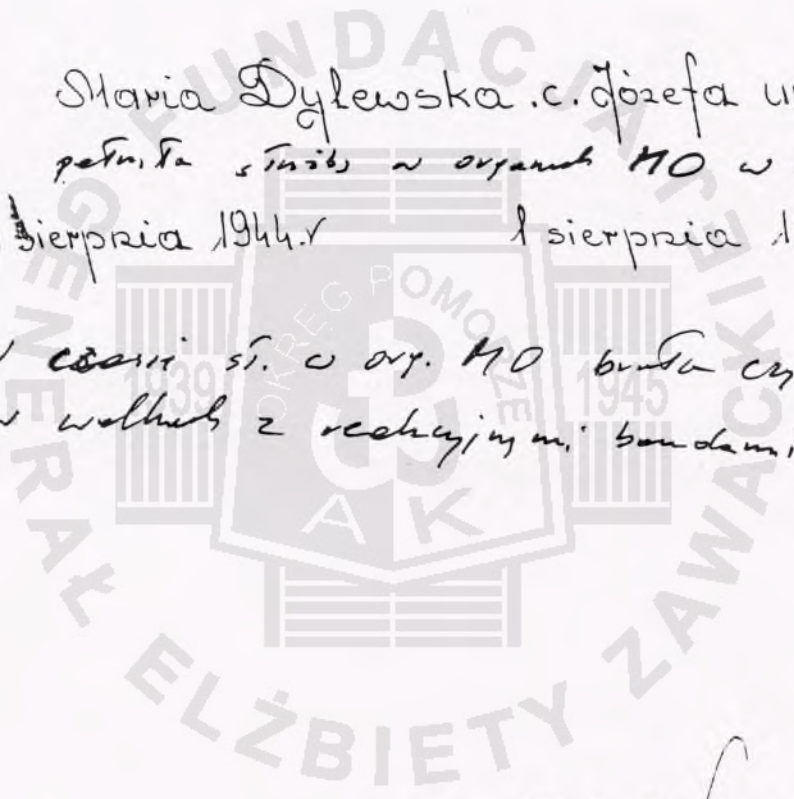 Maria Dylewska .c. Józefa u
pełniła służbę w organach MO w
sierpnia 1944.r 1 sierpnia 1
czasie sł. w org. MO brała cz
w walkach z reakcyjnymi bandami
FUNDACJA
GENERAŁ ELŻBIETY ZAWACKIEJ
OKRĘG POMORZE
1939 1945
AK